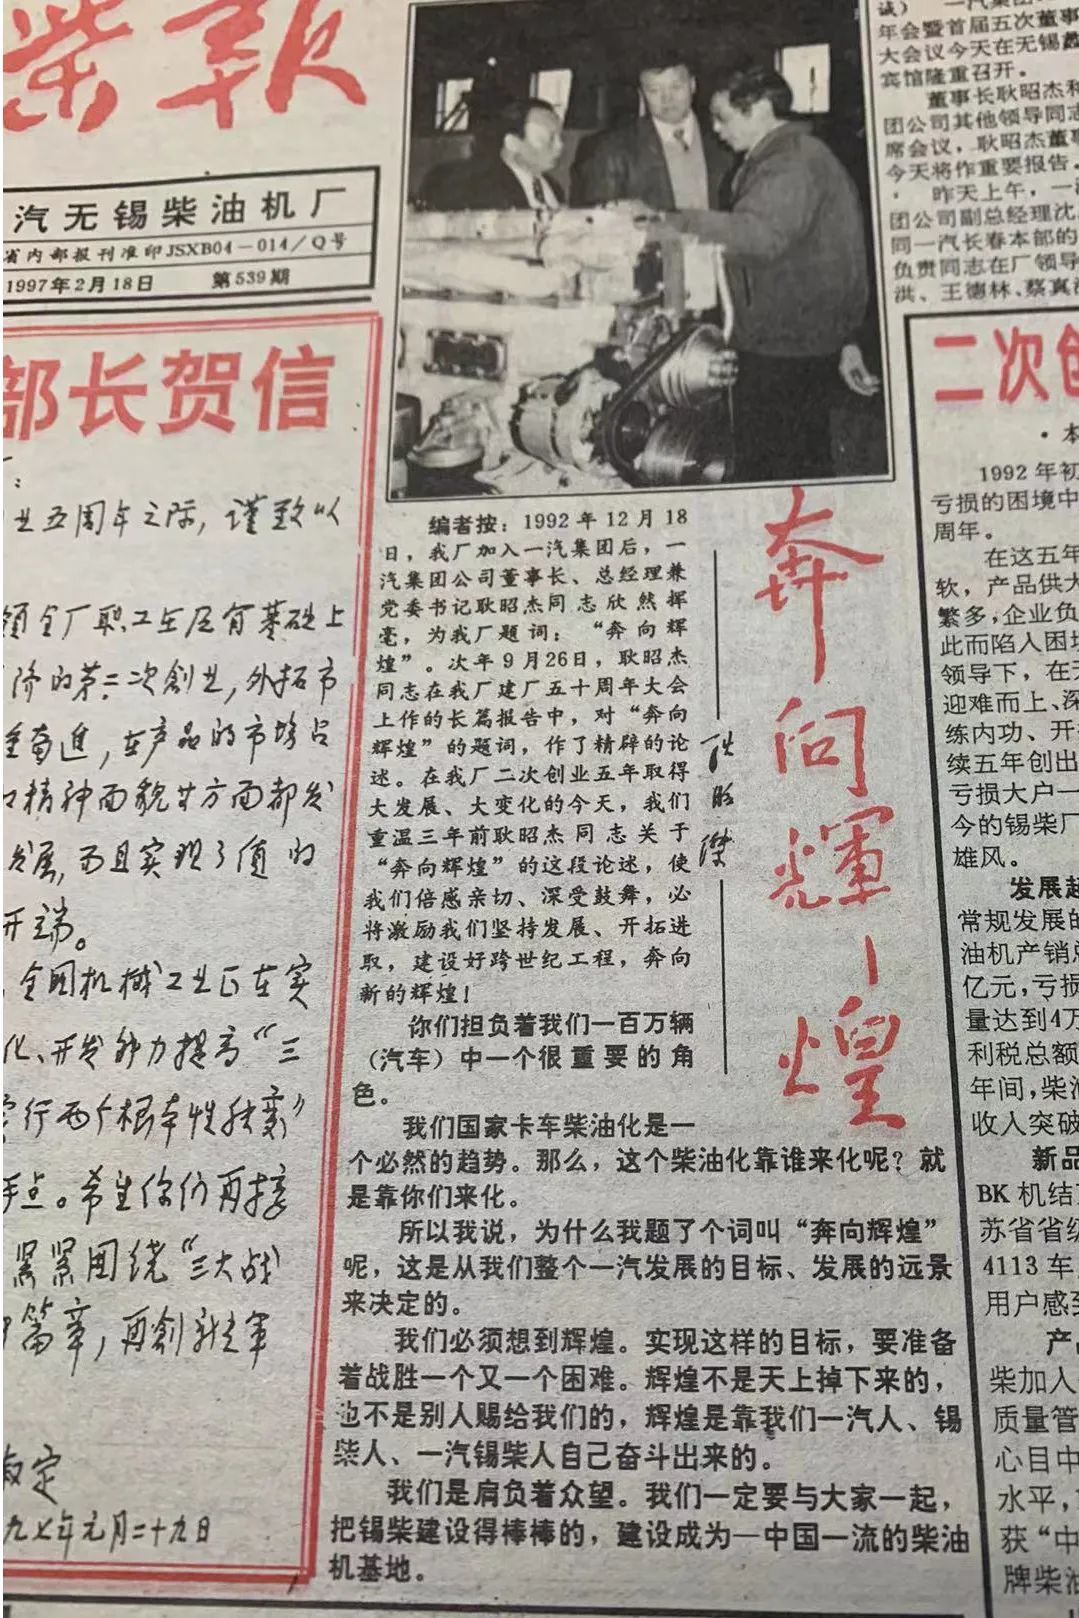 柴報
汽无锡柴油机厂
省内部报刊准印JSXB04-014/Q号
1997年2月18日 第539期
部长贺信
业五周年之际，谨致以
领全厂职工在原有基础上
济的第二次創业，外拓市
奋進，在产品的市场占
精神面貌等方面都发
发展，而且实现了值的
开端。
全国机械工业正在实
化、开发能力提高“三
实行两个根本性转变》
点。希望你们再接
紧紧围绕“三大战
篇章，再創新
九七年元月二十九日
编者按：1992年12月18
日，我厂加入一汽集团后，一
汽集团公司董事长、总经理兼
党委书记耿昭杰同志欣然挥
毫，为我厂题词：“奔向辉
煌”。次年9月26日，耿昭杰
同志在我厂建厂五十周年大会
上作的长篇报告中，对“奔向
辉煌”的题词，作了精辟的论
述。在我厂二次创业五年取得
大发展、大变化的今天，我们
重温三年前耿昭杰同志关于
“奔向辉煌”的这段论述，使
我们倍感亲切、深受鼓舞，必
将激励我们坚持发展、开拓进
取，建设好跨世纪工程，奔向
新的辉煌！
奔向輝煌
耿昭傑
你们担负着我们一百万辆
（汽车）中一个很重要的角
色。
我们国家卡车柴油化是一
个必然的趋势。那么，这个柴油化靠谁来化呢？就
是靠你们来化。
所以我说，为什么我题了个词叫“奔向辉煌”
呢，这是从我们整个一汽发展的目标、发展的远景
来决定的。
我们必须想到辉煌。实现这样的目标，要准备
着战胜一个又一个困难。辉煌不是天上掉下来的，
也不是别人赐给我们的，辉煌是靠我们一汽人、锡
柴人、一汽锡柴人自己奋斗出来的。
我们是肩负着众望。我们一定要与大家一起，
把锡柴建设得棒棒的，建设成为一中国一流的柴油
机基地。
诚） 一汽集团
年会暨首届五次董事
大会议今天在无锡
宾馆隆重召开。
董事长耿昭杰和
团公司其他领导同志
席会议，耿昭杰董事
今天将作重要报告。
昨天上午，一
团公司副总经理沈
同一汽长春本部的
负责同志在厂领导
洪、王德林、蔡真
二次创
·本
1992年初
亏损的困境中
周年。
在这五年
软，产品供大
繁多，企业负
此而陷入困境
领导下，在
迎难而上、深
练内功、开
续五年创出
亏损大户一
今的锡柴厂
雄风。
发展起
常规发展的
油机产销总
亿元，亏损
量达到4万
利税总额
年间，柴油
收入突破
新品
BK机结
苏省省级
4113车
用户感到
产
柴加入
质量管
心目中
水平，
获“中
牌柴油